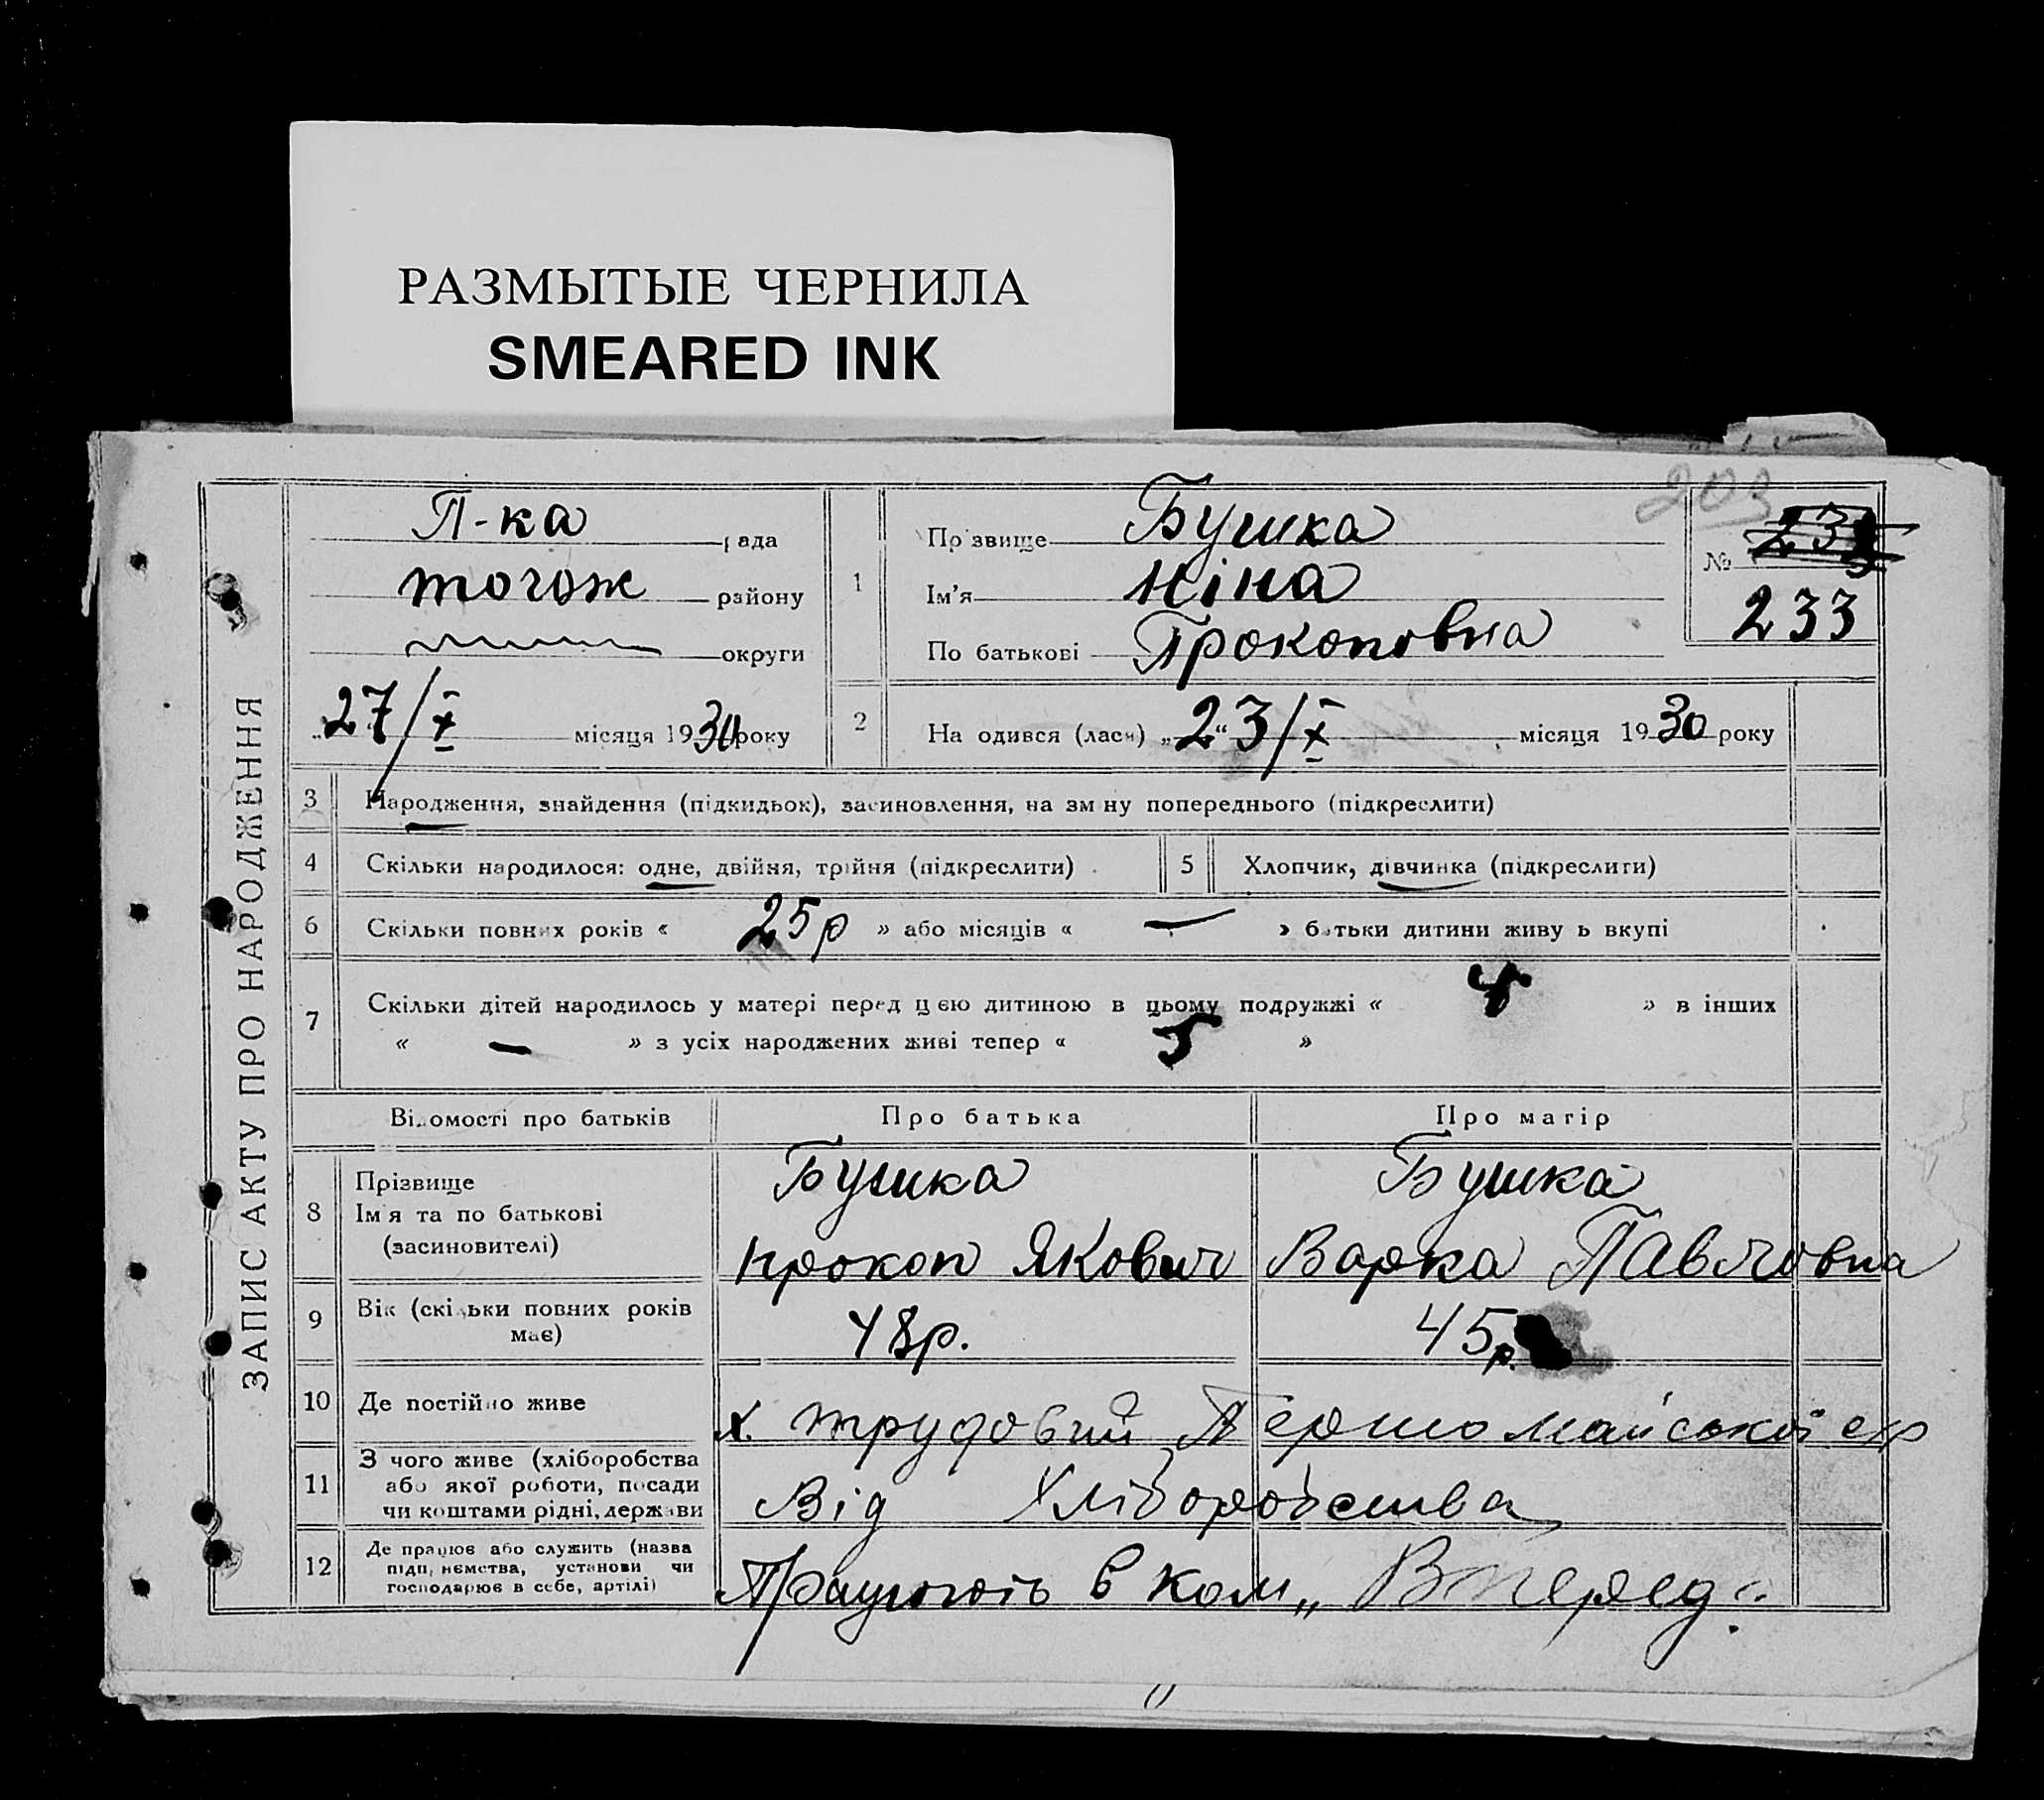 РАЗМЫТЫЕ ЧЕРНИЛА
SMEARED INK
ЗАПИС АКТУ ПРО НАРОДЖЕННЯ
П-ка рада
тогож району
округи
„27/X місяця 1930 року
1
Прізвище Бушка
Ім’я Ніна
По батькові Прокоповна
203
№ 233
2 На одився (лася) „23/X місяця 1930 року
3 Народження, знайдення (підкидьок), засиновлення, на зміну попереднього (підкреслити)
4 Скільки народилося: одне, двійня, трійня (підкреслити)
5 Хлопчик, дівчинка (підкреслити)
6 Скільки повних років « 25 р » або місяців « — » батьки дитини живуть вкупі
7 Скільки дітей народилось у матері перед цією дитиною в цьому подружжі « » в інших
« — » з усіх народжених живі тепер « 5 »
Відомості про батьків Про батька Про матір
8 Прізвище
Ім’я та по батькові
(засиновителі)
Бушка
Прокоп Якович
Бушка
Варка Павловна
9 Вік (скільки повних років
має)
48р.
45р.
10 Де постійно живе
х. трудовий Першомайської с/р
11 З чого живе (хліборобства
або якої роботи, посади
чи коштами рідні, держави
Від Хліборобства
12 Де працює або служить (назва
підприємства, установи чи
господарює в себе, артілі)
Працюють в ком „Вперед“